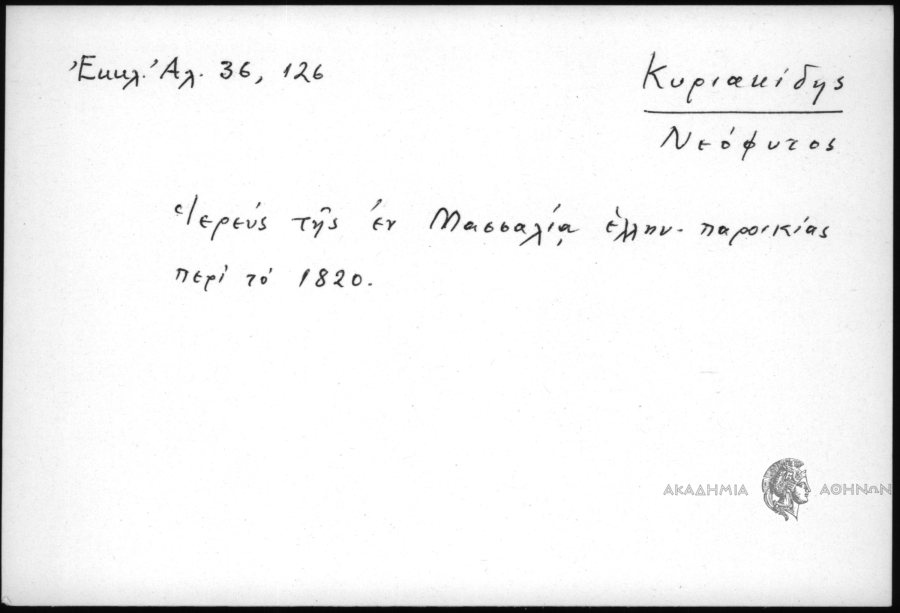 Ἐκκλ. Ἀλ. 36, 126
Κυριακίδης
Νεόφυτος
Ἱερεύς τῆς ἐν Μασσαλίᾳ ἑλλην. παροικίας
περί τό 1820.
ΑΚΑΔΗΜΙΑ ΑΘΗΝΩΝ